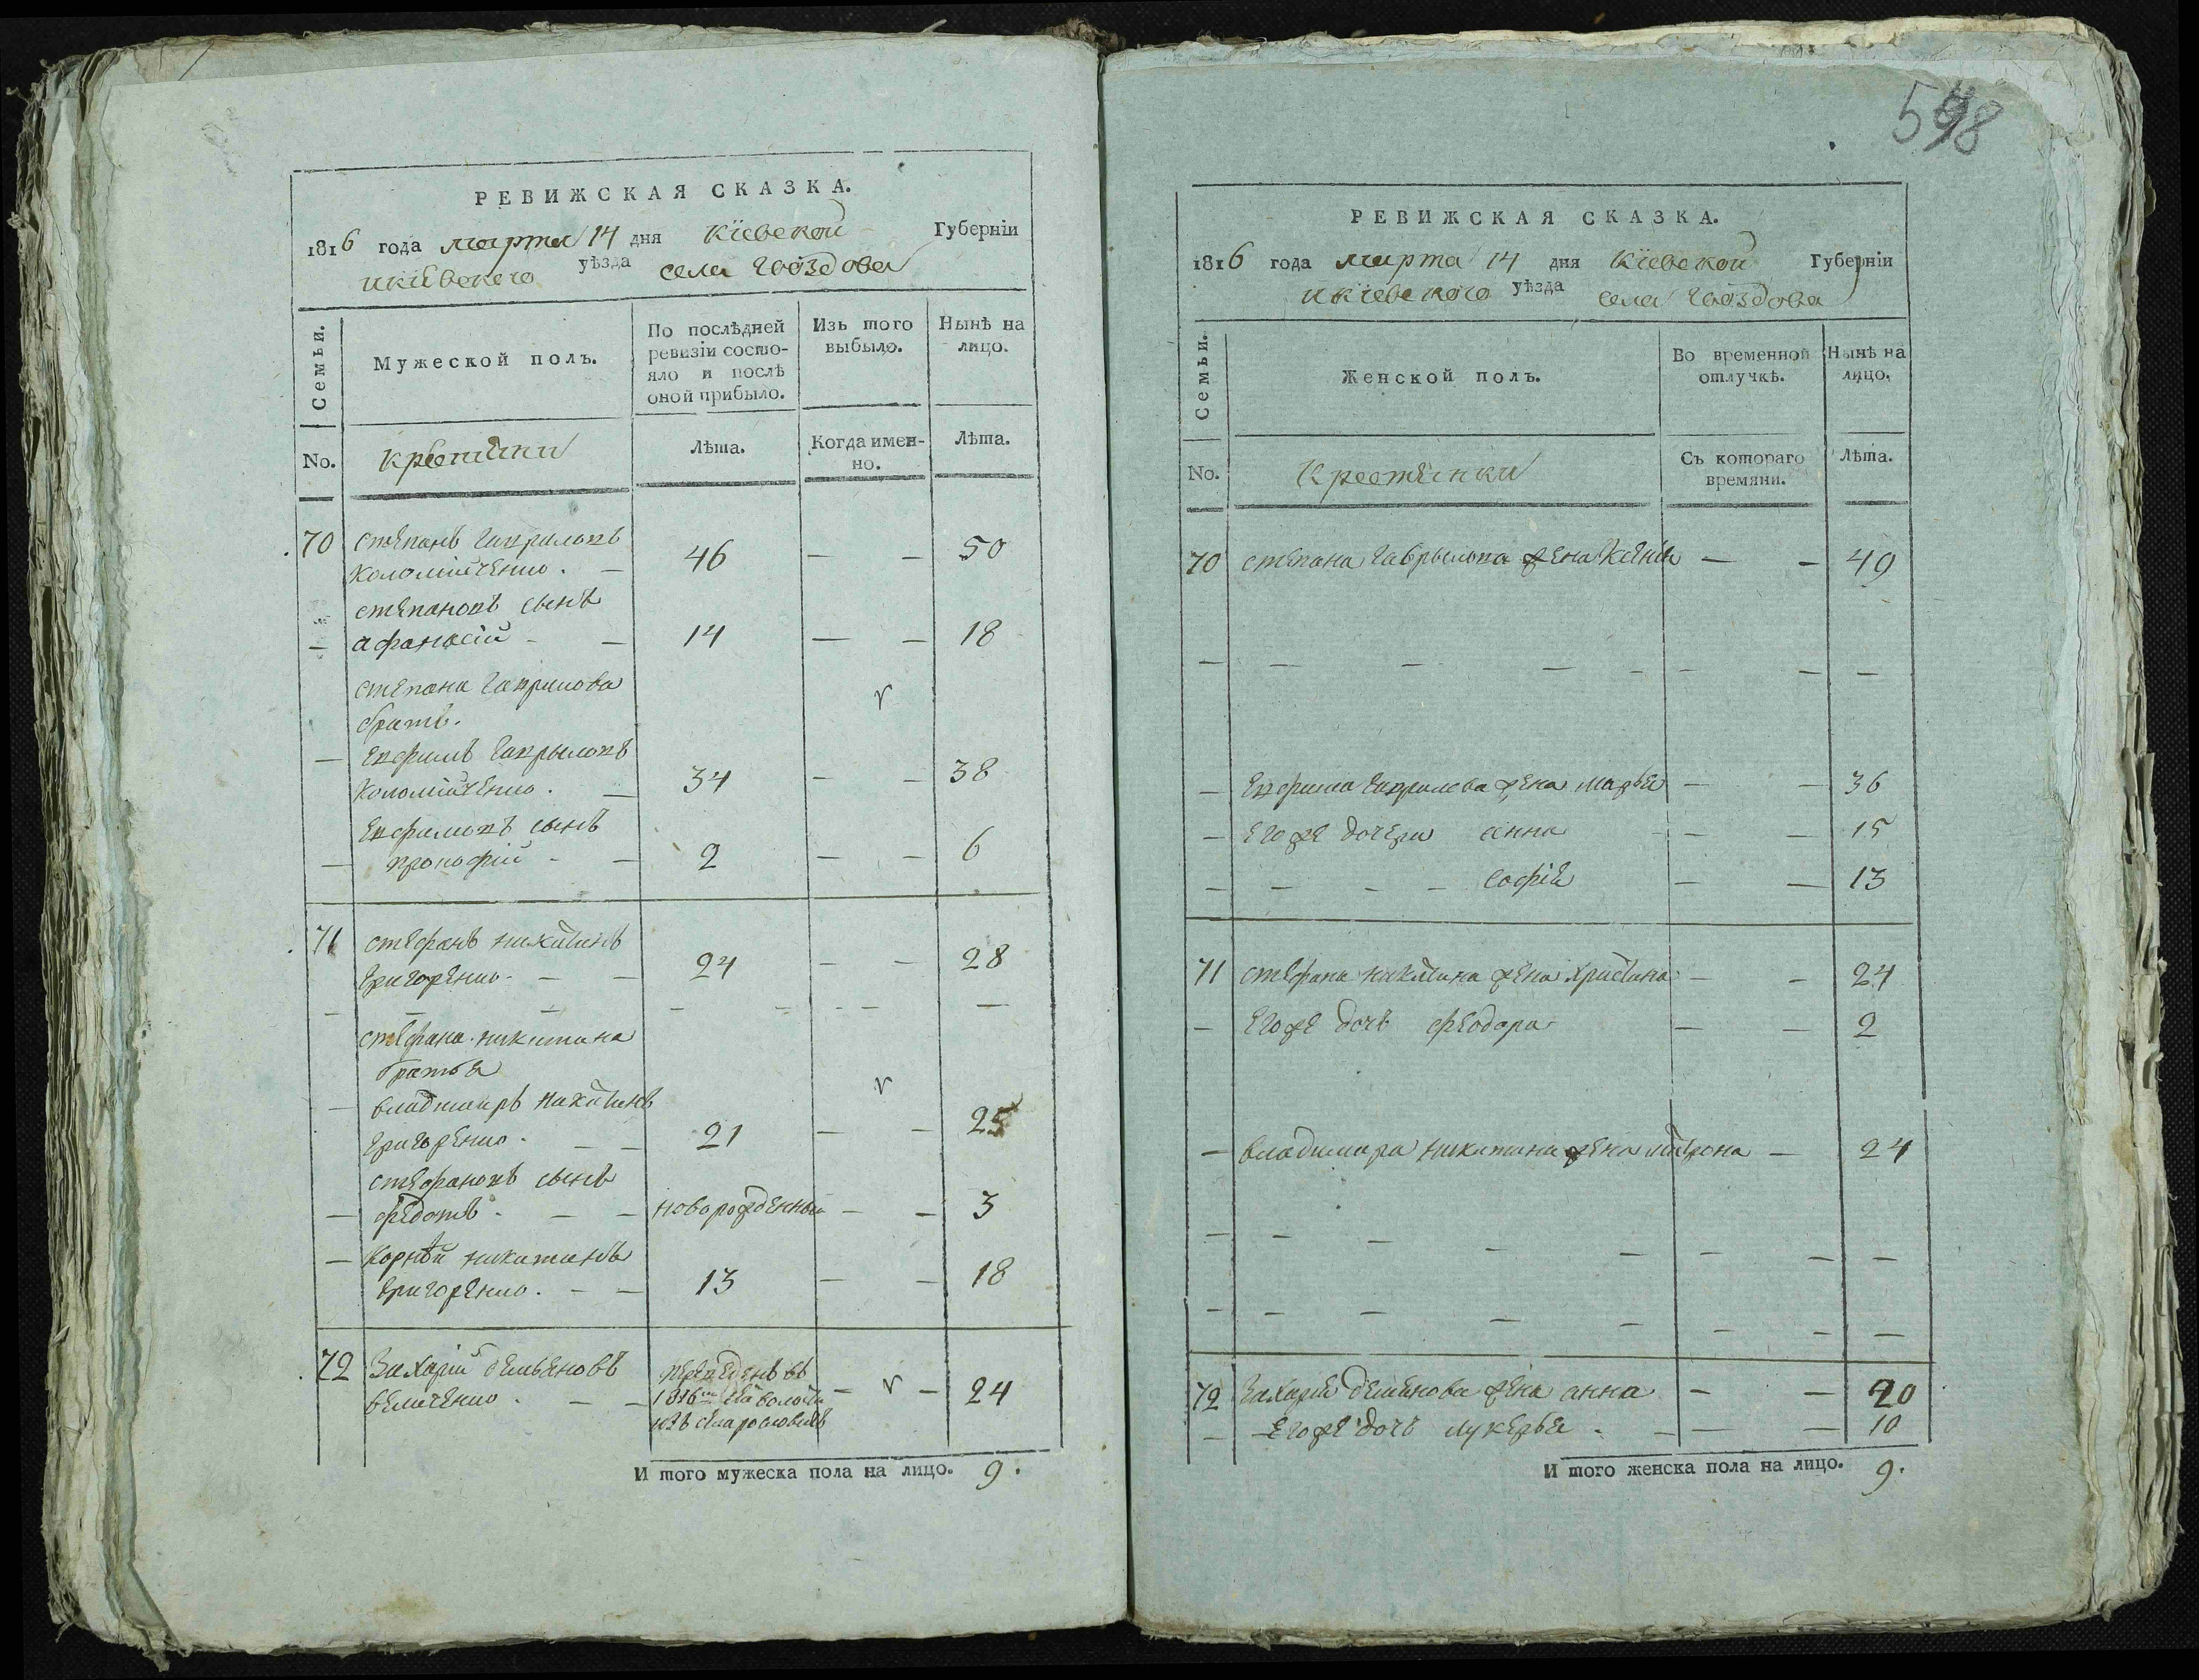 РЕВИЖСКАЯ СКАЗКА.
1816 года марта 14 дня Кіевской Губерніи
Кіевского уѣзда села Гвоздова
Семьи.
Мужеской полъ.
По послѣдней
ревизіи состо-
яло и послѣ
оной прибыло.
Изь того
выбыло.
Нынѣ на
лицо.
No.
Лѣта.
Когда имен-
но.
Лѣта.
70 степанъ гаврыловъ
коломійченко. — 46 — — 50
степановъ сынъ
— афанасій — — 14 — — 18
степана гаврилова
братъ.
— Евфимъ гаврыловъ
Коломійченко. — 34 — — 38
Евфимовъ сынъ
— прокофій — — 2 — — 6
71 стефанъ никитинъ
григоренко — — 24 — — 28
— — — — — — — —
стефана никитина
братья
— владимиръ никитинъ
григоренко. — — 21 — — 25
стефановъ сынъ
— федотъ. — — новорожденный — — 3
— Корнѣй никитинъ
григоренко. — — 13 — — 18
72 Захарій демьяновъ
величенко. — — переведенъ въ
1816 24
И того мужеска пола на лицо. 9.
598
РЕВИЖСКАЯ СКАЗКА.
1816 года марта 14 дня Кіевской Губерніи
Кіевского уѣзда села Гвоздова
Семьи.
Женской полъ.
Во временной
отлучкѣ.
Нынѣ на
лицо.
No.
Крестянки
Съ котораго
времяни.
Лѣта.
70 степана гаврылова жена Ксенія — — 49
— — — — — — — —
— Евфима гаврилова жена марья — — 36
— Его же дочери анна — — 15
— — — — софія — — 13
71 стефана никитина жена христина — — 24
— Его же дочь феодора — — 2
— владимира никитина жена матрона — 24
— — — — — — — —
— — — — — — — —
72 Захарія демянова жена анна — — 20
— Его же дочь лукерья. — — — 10
И того женска пола на лицо. 9.